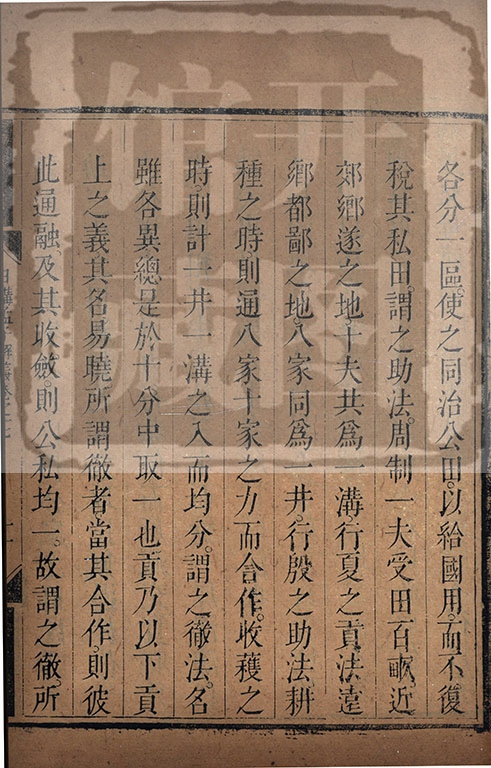 各分一區使之同治公田以給國用而不復
稅其私田謂之助法周制一夫受田百畝近
郊鄉遂之地十夫共爲一溝行夏之貢法遠
鄉都鄙之地八家同爲一井行殷之助法耕
種之時則通八家十家之力而合作收穫之
時則計一井一溝之入而均分謂之徹法名
雖各異總是於十分中取一也貢乃以下貢
上之義其名易曉所謂徹者當其合作則彼
此通融及其收斂則公私均一故謂之徹所
日講四書解義卷之十七